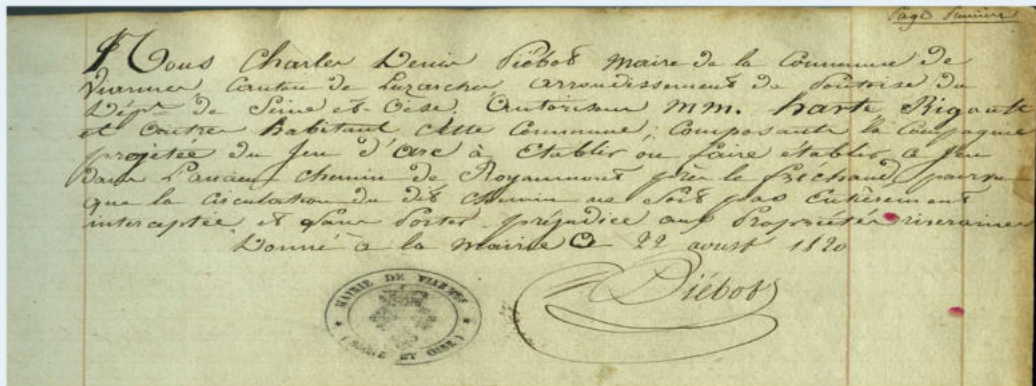 Page Premiere
Nous Charles Denis Diébot Maire de la Commune de
Viarmes, Canton de Luzarches, arrondissement de Pontoise du
Dépt. de Seine et Oise, Autorisons MM. harte Rigault
et Contre habitant cette Commune, Composants la Compagnie
projetée du Jeu d'arc à Etablir ou faire établir ce Jeu
dans L'ancien Chemin de Royaumont près le frechaud, pourvu
que la Circulation du dit chemin ne soit pas Entièrement
interceptée et sans Porter préjudice aux Propriétés riveraines
Donné à la Mairie 22 aoust 1820
Diébot
MAIRIE DE VIARMES
(SEINE ET OISE)